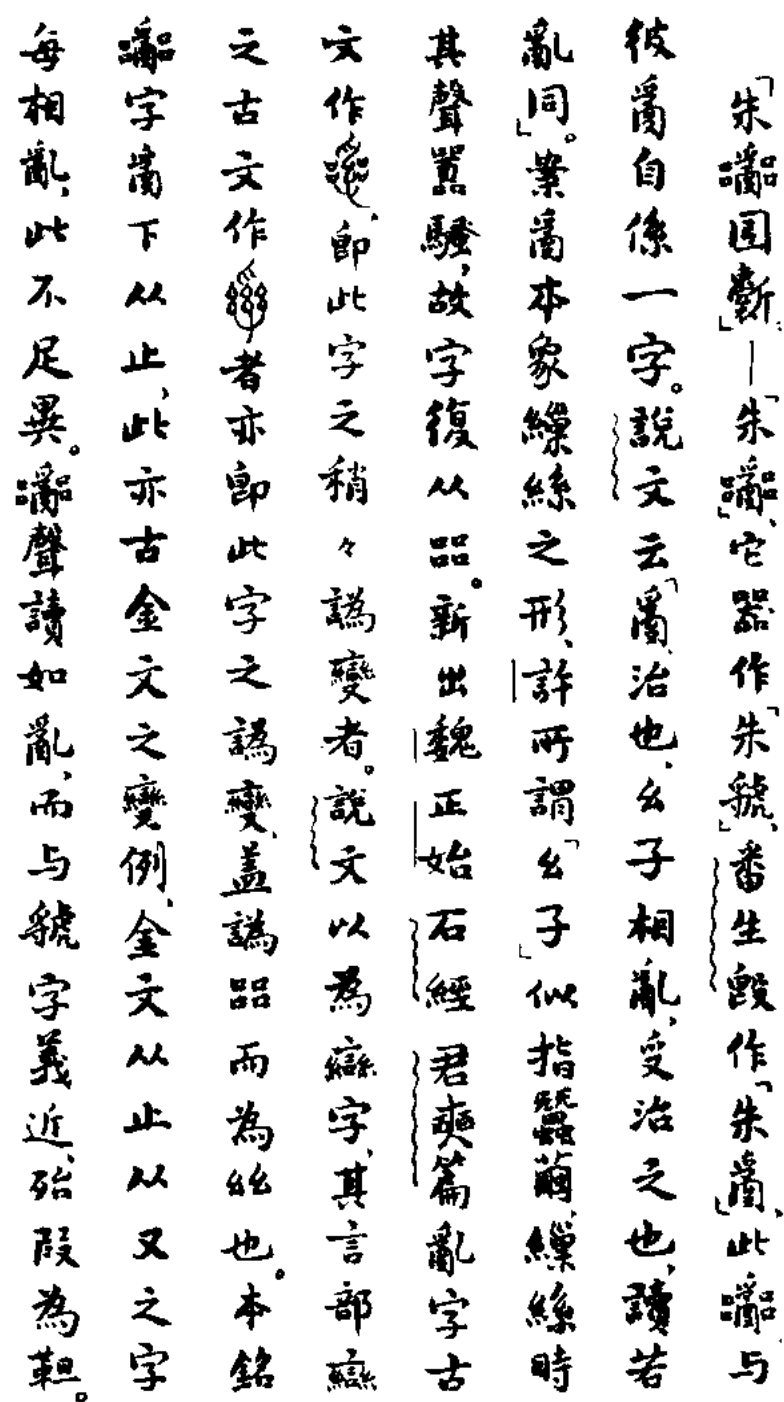 「朱」—「朱」、它器作「朱虢」、番生𣪘作「朱𤔔」、此与
彼𤔔自係一字。說文云「𤔔、治也、幺子相亂、受治之也、讀若
亂同」。案𤔔本象繅絲之形、許所謂「幺子」似指蠶繭、繅絲時
其聲囂騷、故字復从㗊。新出魏正始石經君奭篇亂字古
文作、即此字之稍々譌變者。說文以為䜌字、其言部䜌
之古文作者亦即此字之譌變、盖譌㗊而為丝也。本銘
字𤔔下从止、此亦古金文之變例、金文从止从又之字
每相亂、此不足異。聲讀如亂、而与虢字義近、殆叚為靼。